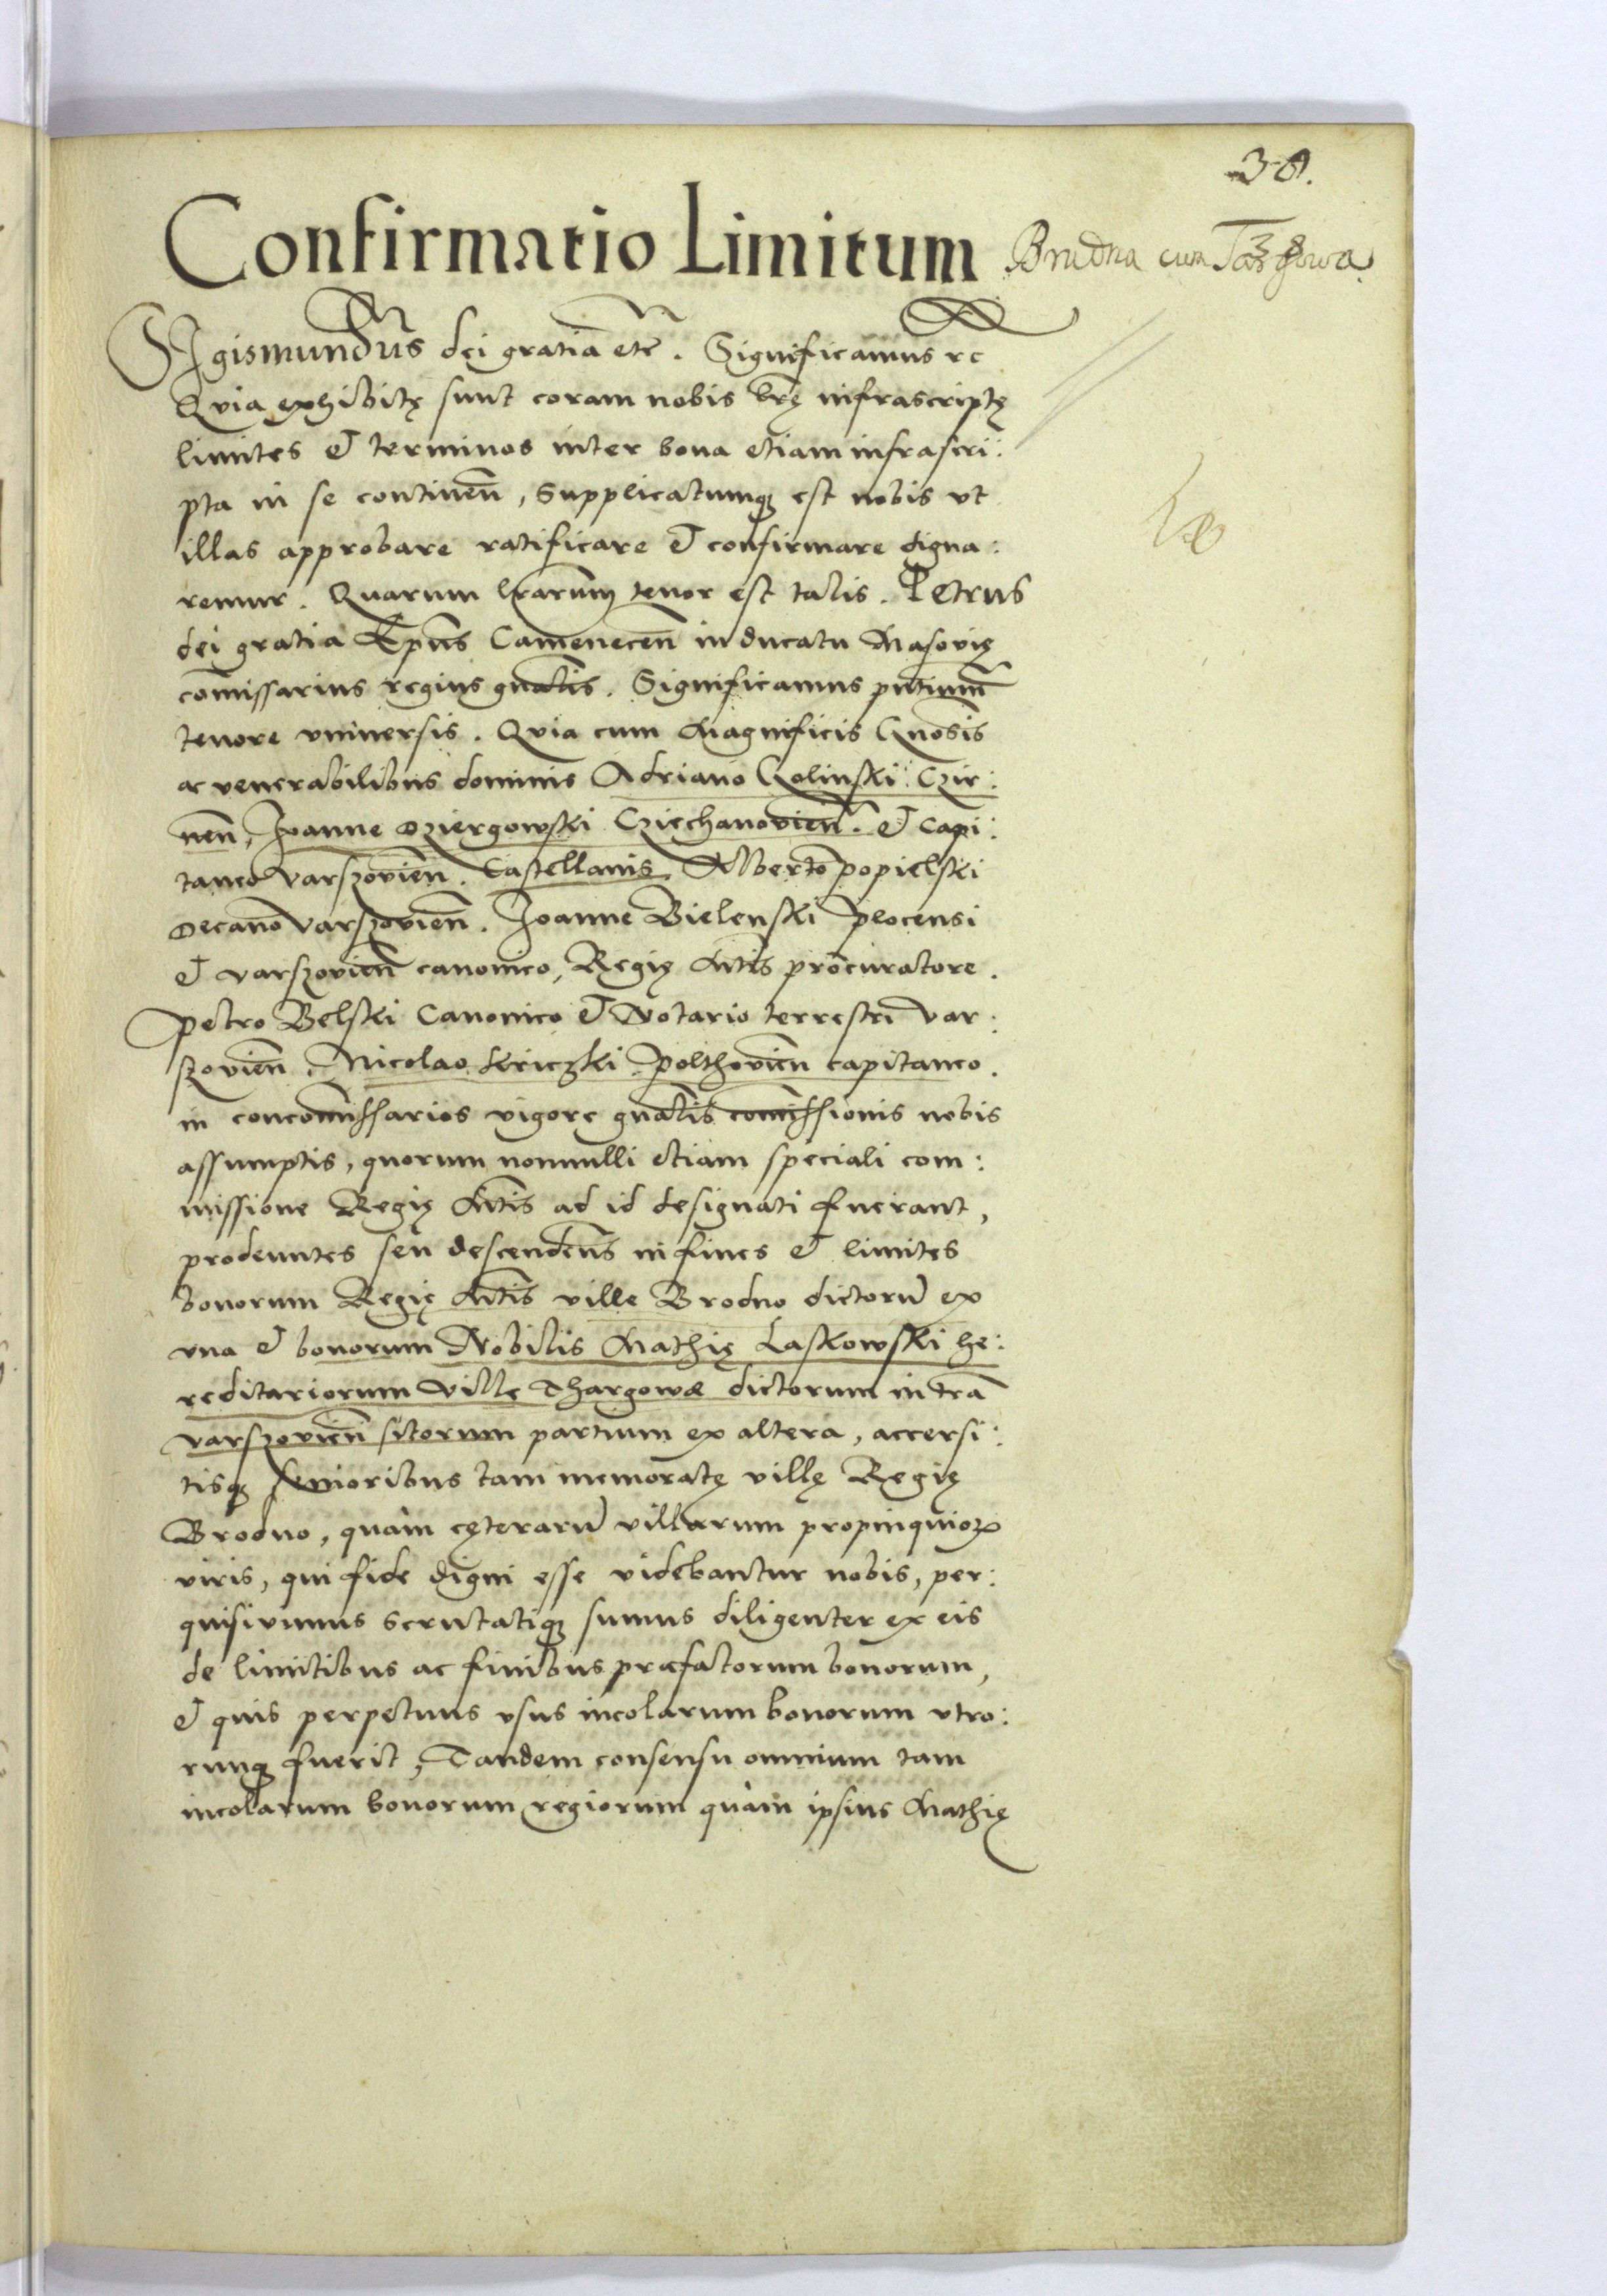 30.
Confirmatio Limitum Brudna cum Targowa.
SIgismundus dei gratia etc̄. Significamus rc
Qvia exhibitę sunt coram nobis lr̄ę infrascriptę
limites et terminos inter bona etiam infrascri:
pta in se continen̄, Supplicatumq3 est nobis vt
illas approbare ratificare et confirmare digna:
remur. Quarum lr̄arum tenor est talis. Petrus
dei gratia Ep̄us Camenecen̄ in ducatu Masovię
com̄issarius regius gn̄alis. Significamus pn̄tium
tenore vniuersis. Qvia cum Magnificis Gn̄osis
ac venerabilibus dominis Adriano Golinski Czir:
nen̄, Joanne Dziergowski Cziechanovien̄. et capi:
taneo Varszovien̄. Castellanis, Alberto popielski
Decano Varszovien̄. Joanne Bielenski plocensi
et varszovien̄ canonico, Regię Mt̄is procuratore.
petro Belski Canonico et Notario terrestri var:
szovien̄. Nicolao kriczki polthovien̄ capitaneo.
in concom̄issarios vigore gn̄alis com̄issionis nobis
assumptis, quorum nonnulli etiam speciali com:
missione Regię Mt̄is ad id designati fuerant,
prodeuntes seu descenden̄s in fines et limites
bonorum Regię Mt̄is ville Brodno dictorū ex
vna et bonorum Nobilis Mathię Laskowski he:
reditariorum villę Thargowæ dictorum in tr̄a
varszovien̄ sitorum partium ex altera, accersi:
tisq3 senioribus tam memoratę villę Regię
Brodno, quàm cęterarū villarum propinquiorꝝ
viris, qui fide digni esse videbantur nobis, per:
quisiuimus scrutatiq3 sumus diligenter ex eis
de limitibus ac finibus præfactorum bonorum,
et quis perpetuus vsus incolarum bonorum vtro:
runq3 fuerit, Tandem consensu omnium tam
incolarum bonorum regiorum quàm ipsius Mathię